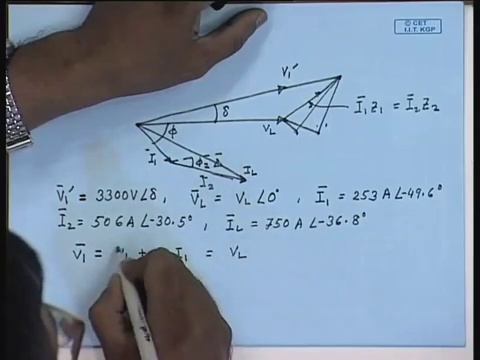 © CET
I.I.T. KGP
V̄₁′
δ
V_L
Ī₁Z₁ = Ī₂Z₂
φ
Ī₁
φ₂
Ī₂
I_L
V̄₁′ = 3300V∠δ, V̄_L = V_L∠0°, Ī₁ = 253A∠-49.6°
Ī₂ = 506A∠-30.5°, Ī_L = 750A∠-36.8°
V̄₁ = + I₁ = V_L